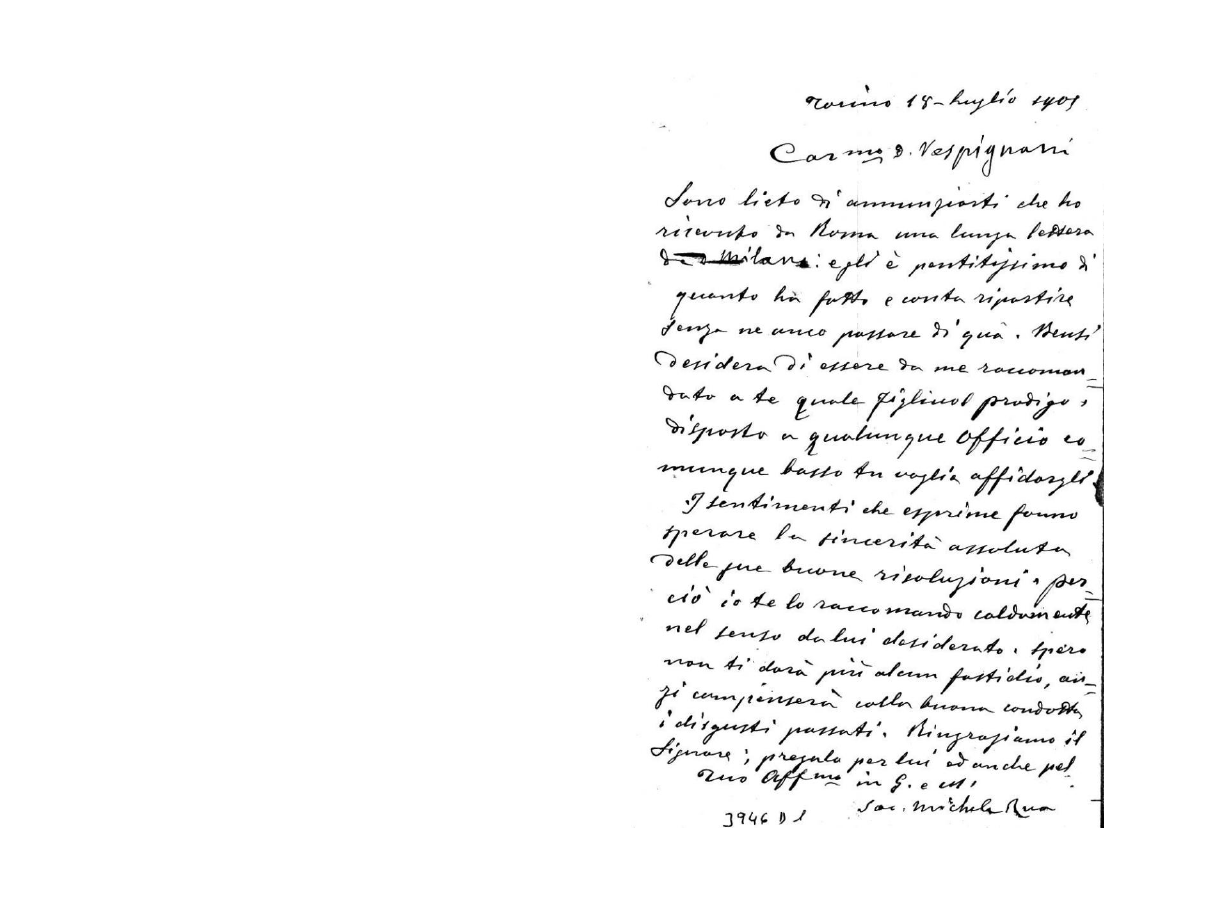 Torino 18-luglio 1901
Car.mo D. Vespignani
Sono lieto di annunziarti che ho
ricevuto da Roma una lunga lettera
Milano: egli è pentitissimo di
quanto ha fatto e conta ripartire
senza ne anco passare di quà. Bensì
desidera di essere da me raccoman_
dato a te quale figliuol prodigo,
disposto a qualunque officio co_
munque basso tu voglia affidargli.
I sentimenti che esprime fanno
sperare la sincerità assoluta
delle sue buone risoluzioni, per_
ciò io te lo raccomando caldamente
nel senso da lui desiderato. Spero
non ti darà più alcun fastidio, an_
zi compenserà colla buona condotta
i disgusti passati. Ringraziamo il
Signore; pregalo per lui ed anche pel
Tuo Aff.mo in G. e M.
Sac. Michele Rua
3946 D 1